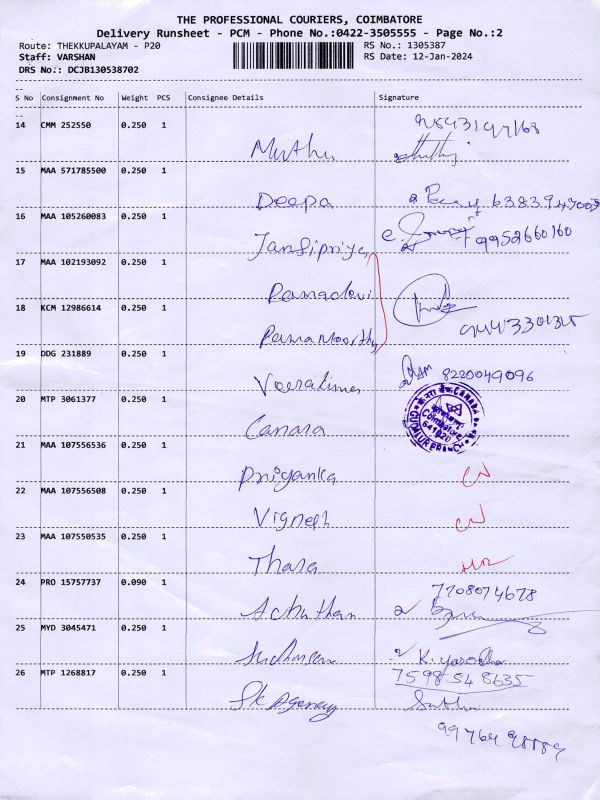 THE PROFESSIONAL COURIERS, COIMBATORE
Delivery Runsheet - PCM - Phone No.:0422-3505555 - Page No.:2
Route: THEKKUPALAYAM - P20 RS No.: 1305387
Staff: VARSHAN RS Date: 12-Jan-2024
DRS No.: DCJB130538702
S No Consignment No Weight PCS Consignee Details Signature
14 CMM 252550 0.250 1
Muthu
15 MAA 571785500 0.250 1
Deepa
16 MAA 105260083 0.250 1
Jansipriya 9952660160
17 MAA 102193092 0.250 1
Ramadevi
18 KCM 12986614 0.250 1
Rama Moorthy
19 DDG 231889 0.250 1
8220049096
20 MTP 3061377 0.250 1
Canara
CANARA
Coimbatore
641020
21 MAA 107556536 0.250 1
Priyanka
22 MAA 107556508 0.250 1
Vignesh
23 MAA 107550535 0.250 1
Thara
24 PRO 15757737 0.090 1
7708074678
Achuthan
25 MYD 3045471 0.250 1
K. Yasodha
26 MTP 1268817 0.250 1
7598548635
SK Agency